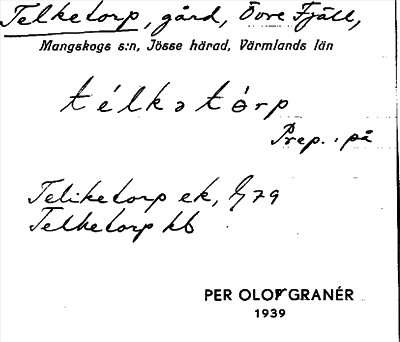 Telketorp, gård, Övre Fjäll,
Mangskogs s:n, Jösse härad, Värmlands län
télkətórp
Prep. på
Teliketorp ek, 79
Telketorp kb
PER OLOF GRANÉR
1939